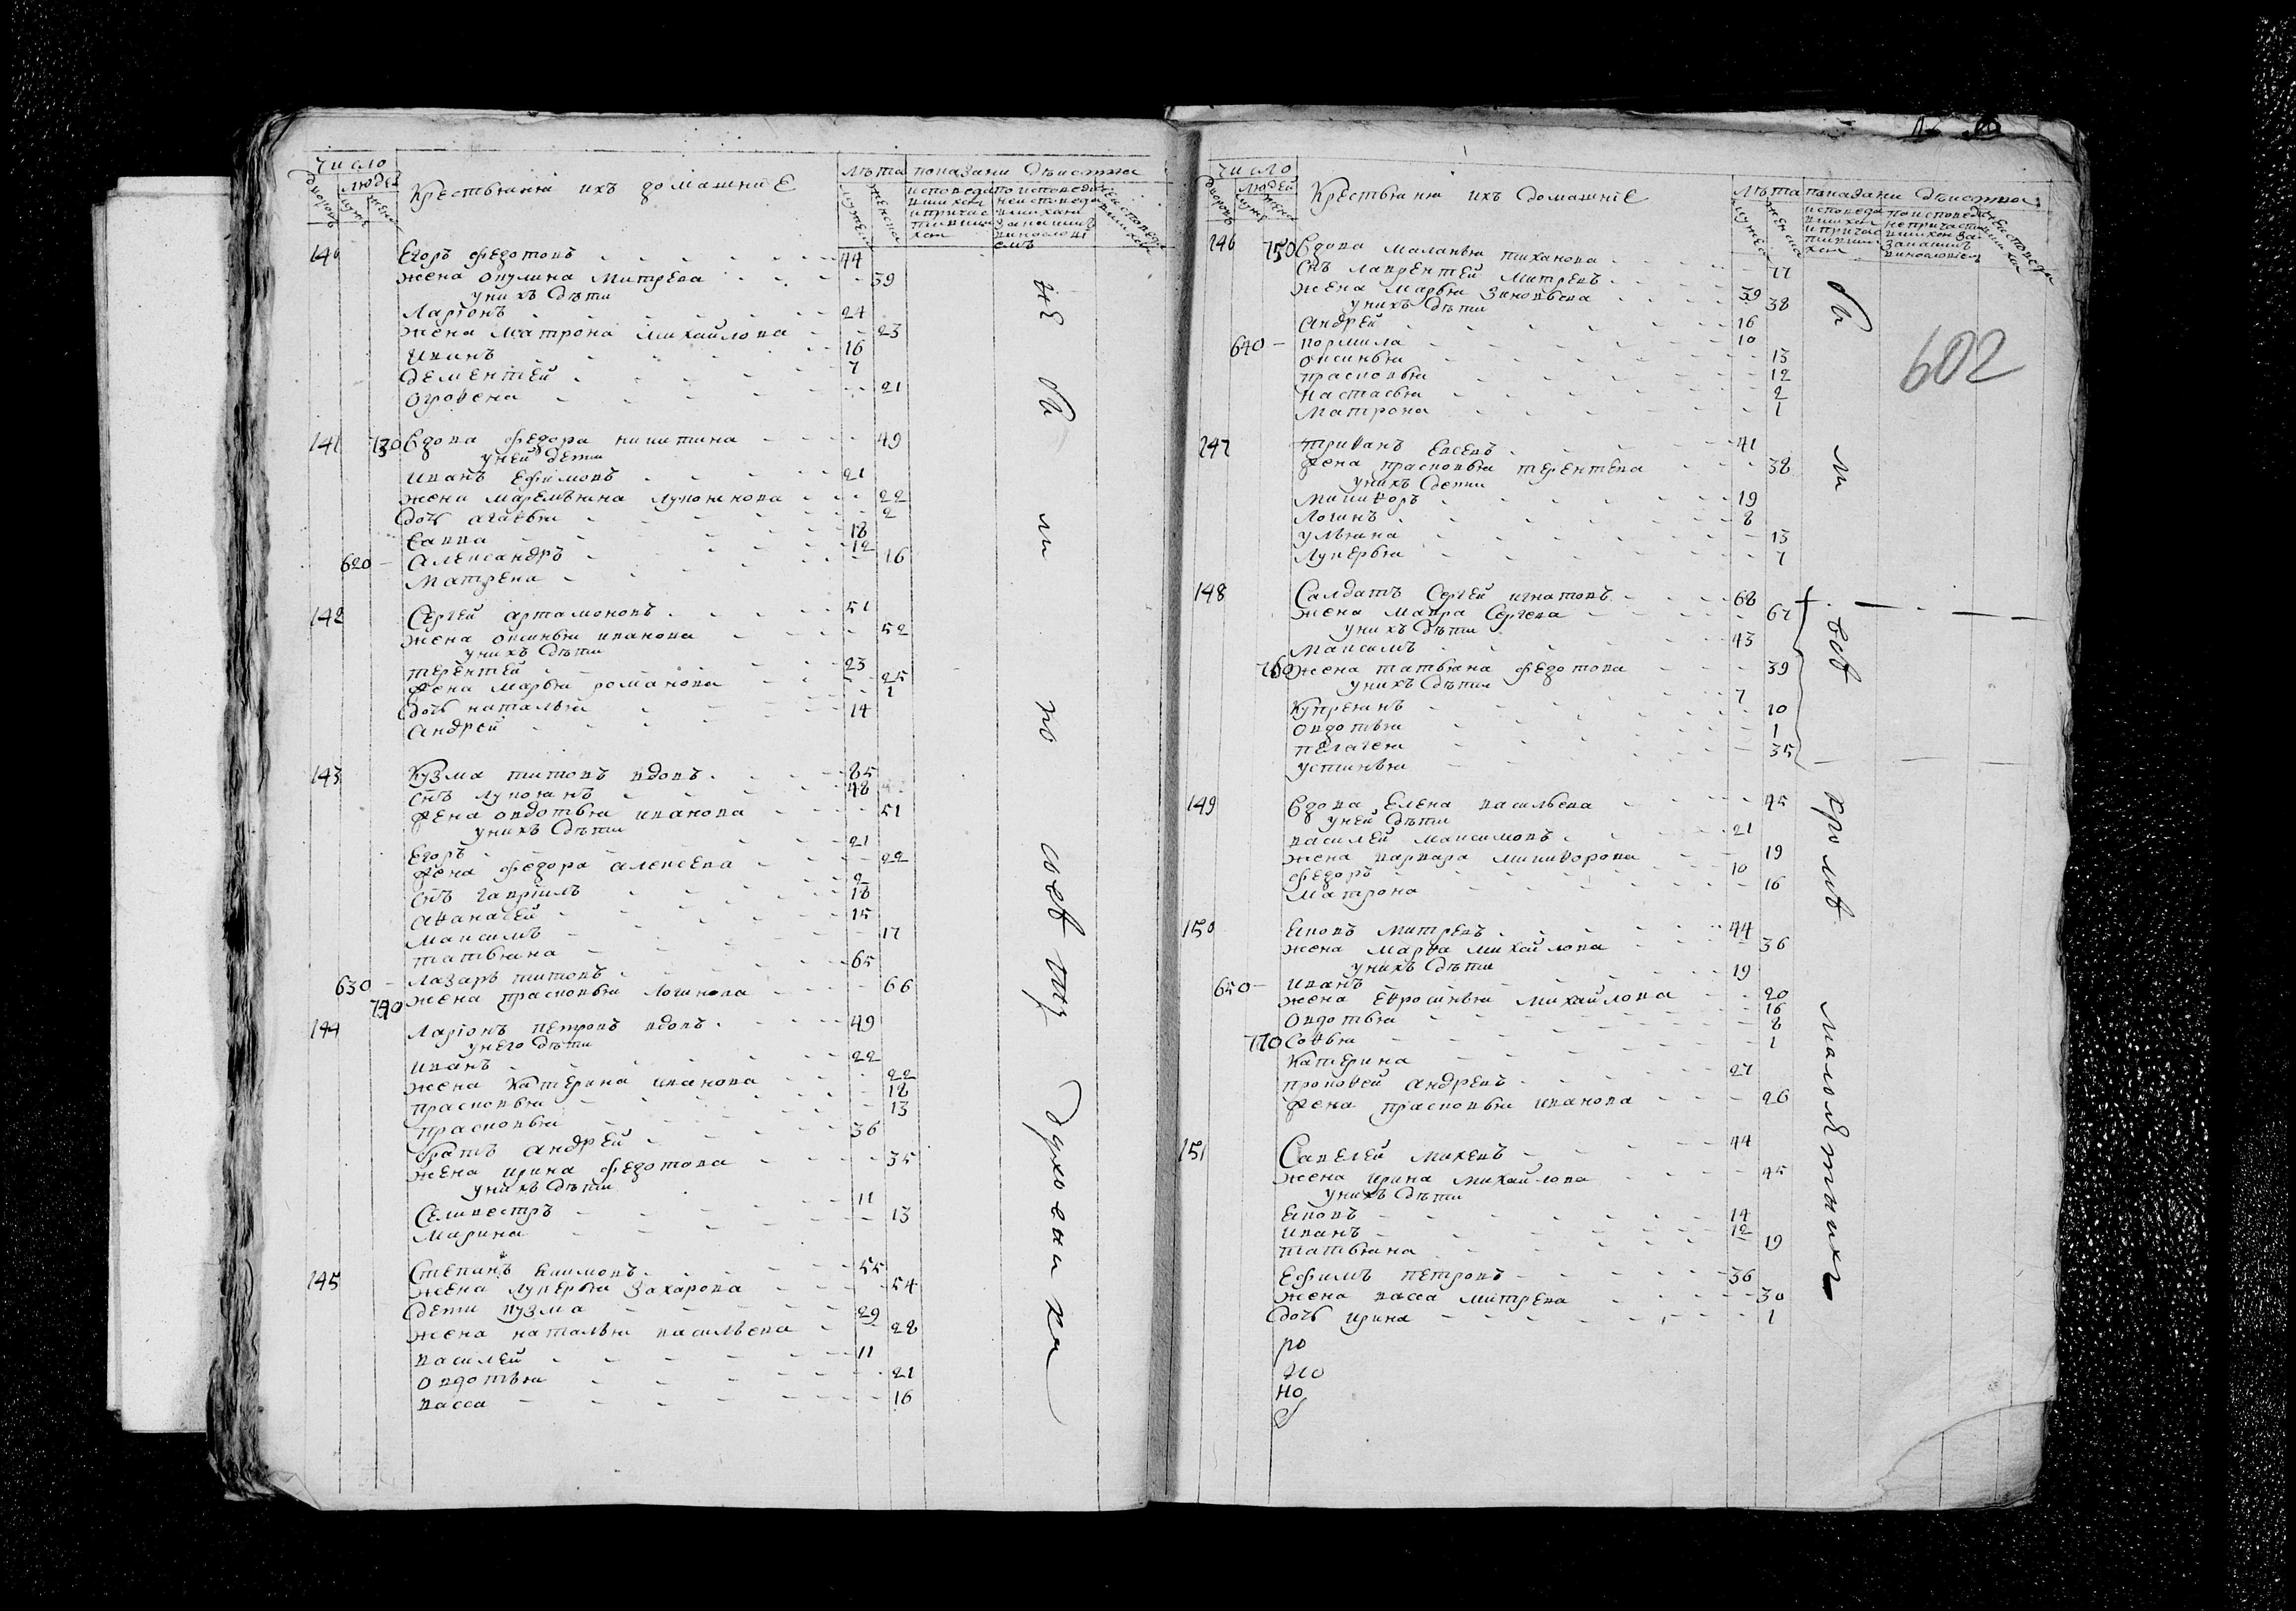 число
людей
дворовъ
муже
жена
Крестьяня ихъ домашние
лѣта
мужеска
женска
показани дѣиства
140 Егоръ федотовъ 44
жена окулина Митрева 39
уни хъ дѣти
Ларіонъ 24
жена Матрона михайлова 23
иванъ 16
дементей 7
огрофена 21
141 730 вдова федора никитина 49
уней дети
иванъ Ефимовъ 21
жена маремьяна лукоянова 22
дочь агафья 2
Савва 18
620 Александръ 12
Матрена 16
142 Сергей артамоновъ 51
жена оксинья иванова 52
унихъ дѣти
терентей 23
жена марья романова 25
дочь наталья 1
андрей 14
143 Кузма титовъ вдовъ 85
снъ лукоянъ 48
жена овдотья иванова 51
унихъ дѣти
Егоръ 21
жена федора алексева 22
снъ гаврилъ 2
афанасей 18
максимъ 15
татьяна 17
630 Лазаръ титовъ 65
740 жена прасковья логинова 66
144 Ларіонъ петровъ вдовъ 49
унего дѣти
иванъ 22
жена Катерина иванова 22
прасковья 18
прасковья 13
братъ андрей 36
жена ирина федотова 35
унихъ дѣти
Селивестръ 11
марина 13
145 Степанъ якимовъ 55
жена лукерья захарова 54
дети кузма 29
жена наталья васильева 28
василей 11
овдотья 21
васса 16
не бы ли по сей тих духовни ки
число
людей
дворовъ
мужеска
Крестьяня ихъ домашніе
лѣта
мужеска
женска
показани дѣиства
602
146 750 вдова маланья тиханова 77
снъ лаврентей митревъ 39
жена марья зиновьева 38
унихъ дѣти
андрей 16
640 кормила 10
оксинья 13
прасковья 12
настасья 2
матрона 1
147 трифанъ Евсевъ 41
жена прасковья терентева 38
унихъ дети
никифоръ 19
логинъ 8
ульяна 13
лукерья 7
148 Салдатъ Сергей игнатовъ 68
жена мавра Сергева 67
унихъ дѣти
максимъ 43
760 жена татьяна федотова 39
унихъ дѣти
купреянъ 7
овдотья 10
пелагея 1
устинья 35
149 вдова Елена васильева 45
уней дѣти
василей максимовъ 21
жена варвара никифорова 19
федоръ 10
матрона 16
150 яковъ митревъ 44
жена марфа михайлова 36
унихъ дѣти
650 иванъ 19
жена Ефросинья михайлова 20
овдотья 16
770 софья 8
катерина 1
прокофей андревъ 27
жена прасковья иванова 26
151 Савелей михевъ 44
жена ирина михайлова 45
унихъ дѣти
яковъ 14
иванъ 12
татьяна 19
Ефимъ петровъ 36
жена васса митрева 30
дочь ирина 1
ро
но
бы ли всѣ кромѣ малолѣтнихъ